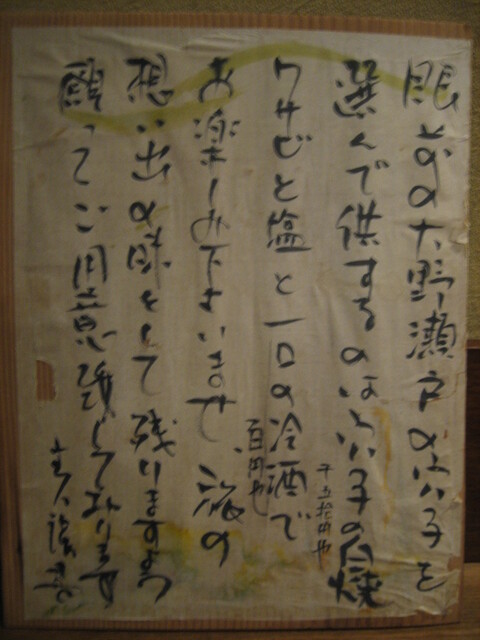 眼前の大野瀬戸の穴子を
選んで供するのは穴子の白焼
千五拾円也
ワサビと塩と一口の冷酒で
百円也
お楽しみ下さいませ、旅の
想い出の味として残りますよう
願ってご用意致しております